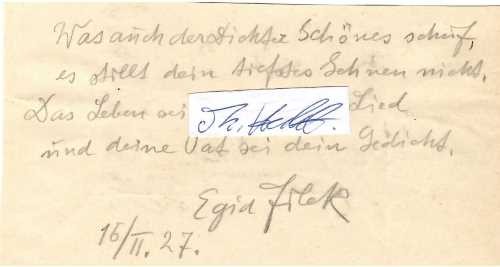 Was auch der Dichter Schönes schuf,
es stillt dein tiefstes Sehnen nicht.
Das Leben sei Lied
und deine Tat sei dein Gedicht.
Egid Filek
16/II. 27.